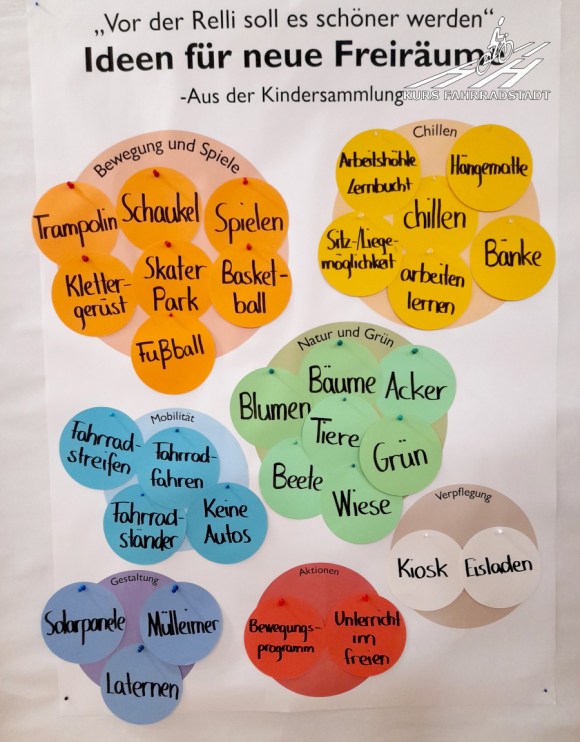 „Vor der Relli soll es schöner werden“
Ideen für neue Freiräume
-Aus der Kindersammlung
KURS FAHRRADSTADT
Bewegung und Spiele
Trampolin
Schaukel
Spielen
Kletter-
gerüst
Skater
Park
Basket-
ball
Fußball
Chillen
Arbeitshöhle
Lernbucht
Hängematte
chillen
Sitz-/Liege-
möglichkeit
arbeiten
lernen
Bänke
Natur und Grün
Blumen
Bäume
Acker
Tiere
Grün
Beete
Wiese
Mobilität
Fahrrad-
streifen
Fahrrad-
fahren
Fahrrad-
ständer
Keine
Autos
Verpflegung
Kiosk
Eisladen
Gestaltung
Solarpanele
Mülleimer
Laternen
Aktionen
Bewegungs-
programm
Unterricht
im
freien